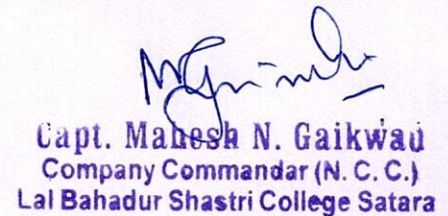 Capt. Mahesh N. Gaikwad
Company Commander (N. C. C.)
Lal Bahadur Shastri College Satara